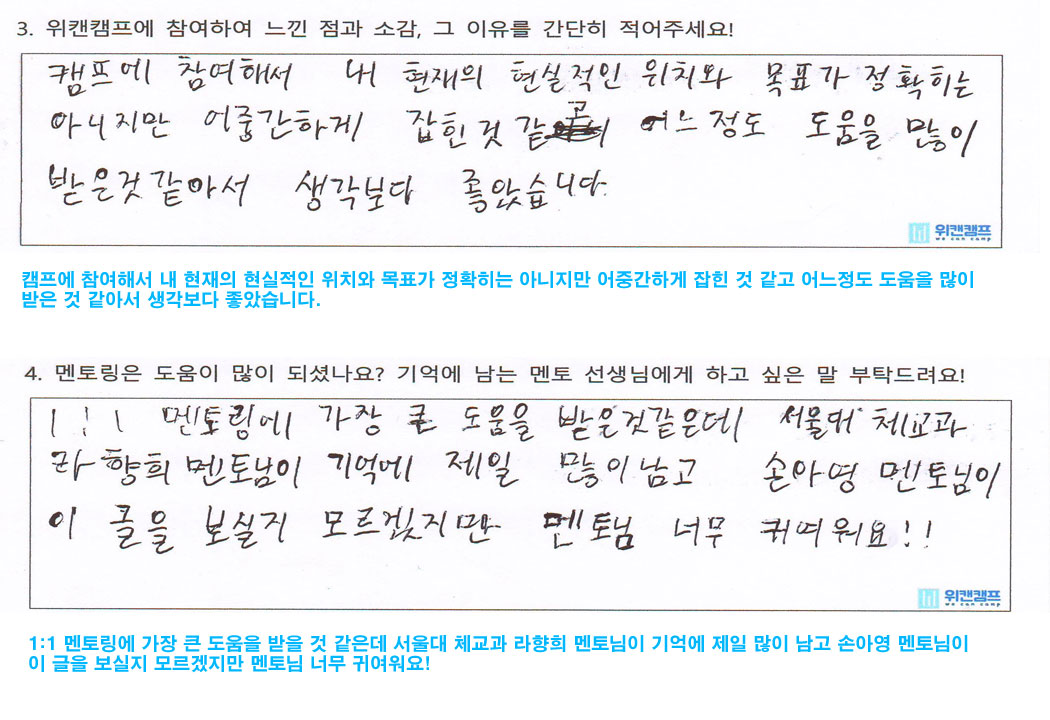 3. 위캔캠프에 참여하여 느낀 점과 소감, 그 이유를 간단히 적어주세요!
캠프에 참여해서 내 현재의 현실적인 위치와 목표가 정확히는
아니지만 어중간하게 잡힌것 같고 어느정도 도움을 많이
받은것같아서 생각보다 좋았습니다.
위캔캠프
we can camp
캠프에 참여해서 내 현재의 현실적인 위치와 목표가 정확히는 아니지만 어중간하게 잡힌 것 같고 어느정도 도움을 많이
받은 것 같아서 생각보다 좋았습니다.
4. 멘토링은 도움이 많이 되셨나요? 기억에 남는 멘토 선생님에게 하고 싶은 말 부탁드려요!
1:1 멘토링에 가장 큰 도움을 받은것같은데 서울대 체교과
라향희 멘토님이 기억에 제일 많이남고 손아영 멘토님이
이 글을 보실지 모르겠지만 멘토님 너무 귀여워요!!
위캔캠프
we can camp
1:1 멘토링에 가장 큰 도움을 받을 것 같은데 서울대 체교과 라향희 멘토님이 기억에 제일 많이 남고 손아영 멘토님이
이 글을 보실지 모르겠지만 멘토님 너무 귀여워요!